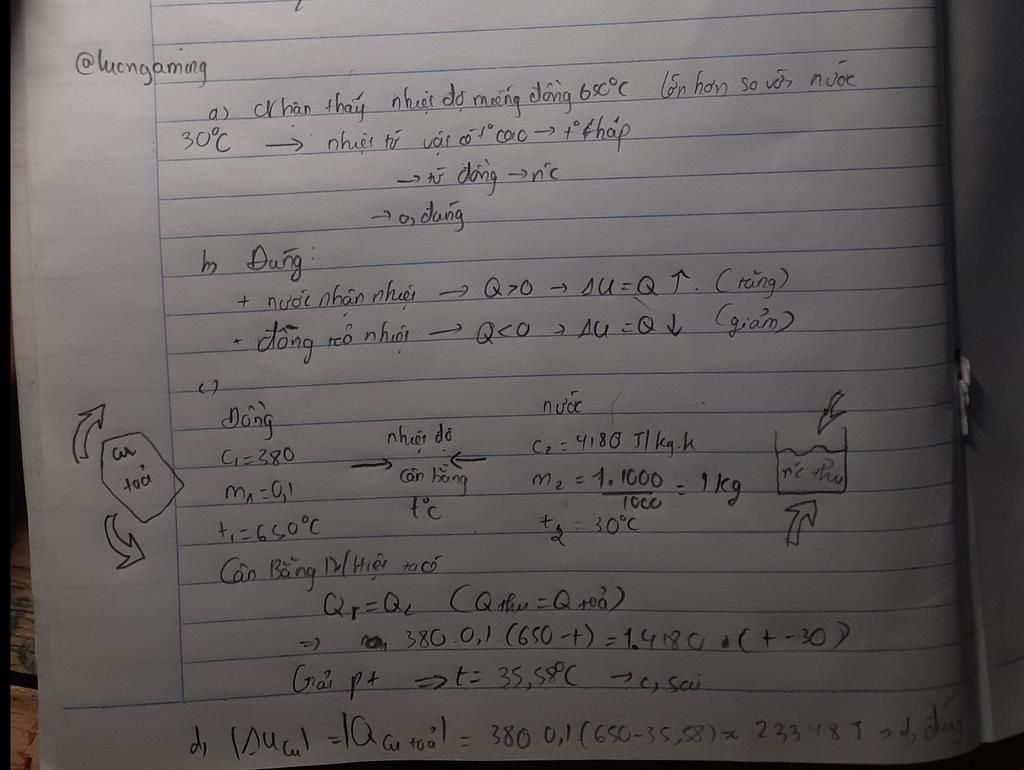 @luongaming
a) Nhận thấy nhiệt độ miếng đồng 650°C lớn hơn so với nước
30°C → nhiệt từ vật có t° cao → t° thấp
→ từ đồng → nc
→ a, đúng
b, Đúng:
+ nước nhận nhiệt → Q>0 → ΔU=Q ↑. (tăng)
+ đồng toả nhiệt → Q<0 → ΔU=Q ↓ (giảm)
c)
Đồng nhiệt độ nước
C₁=380 → ← C₂=4180 J/kg.k
m₁=0,1 cân bằng m₂ = 1.1000/1000 = 1kg
t₁=650°C t°C t₂ = 30°C
cu toả
nc thu
Cân Bằng Nhiệt ta có
(Q thu = Q toả)
=> 380.0,1.(650-t)=1.4180.(t-30)
Giải pt => t= 35,58°C → c, sai
d, |ΔU cu| = |Q cu toả| = 380.0,1(650-35,58)≈ 23348 J → d, đúng